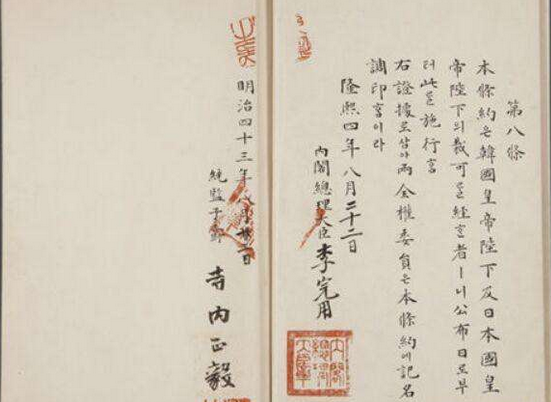 第八條
本條約은韓國皇帝陛下及日本國皇
帝陛下의裁可를經한者ㅣ니公布日로부
터此를施行홈
右證據로삼아兩全權委員은本條約에記名
調印홈이라
隆熙四年八月二十二日
內閣總理大臣李完用
明治四十三年八月廿二日
統監子爵 寺內正毅